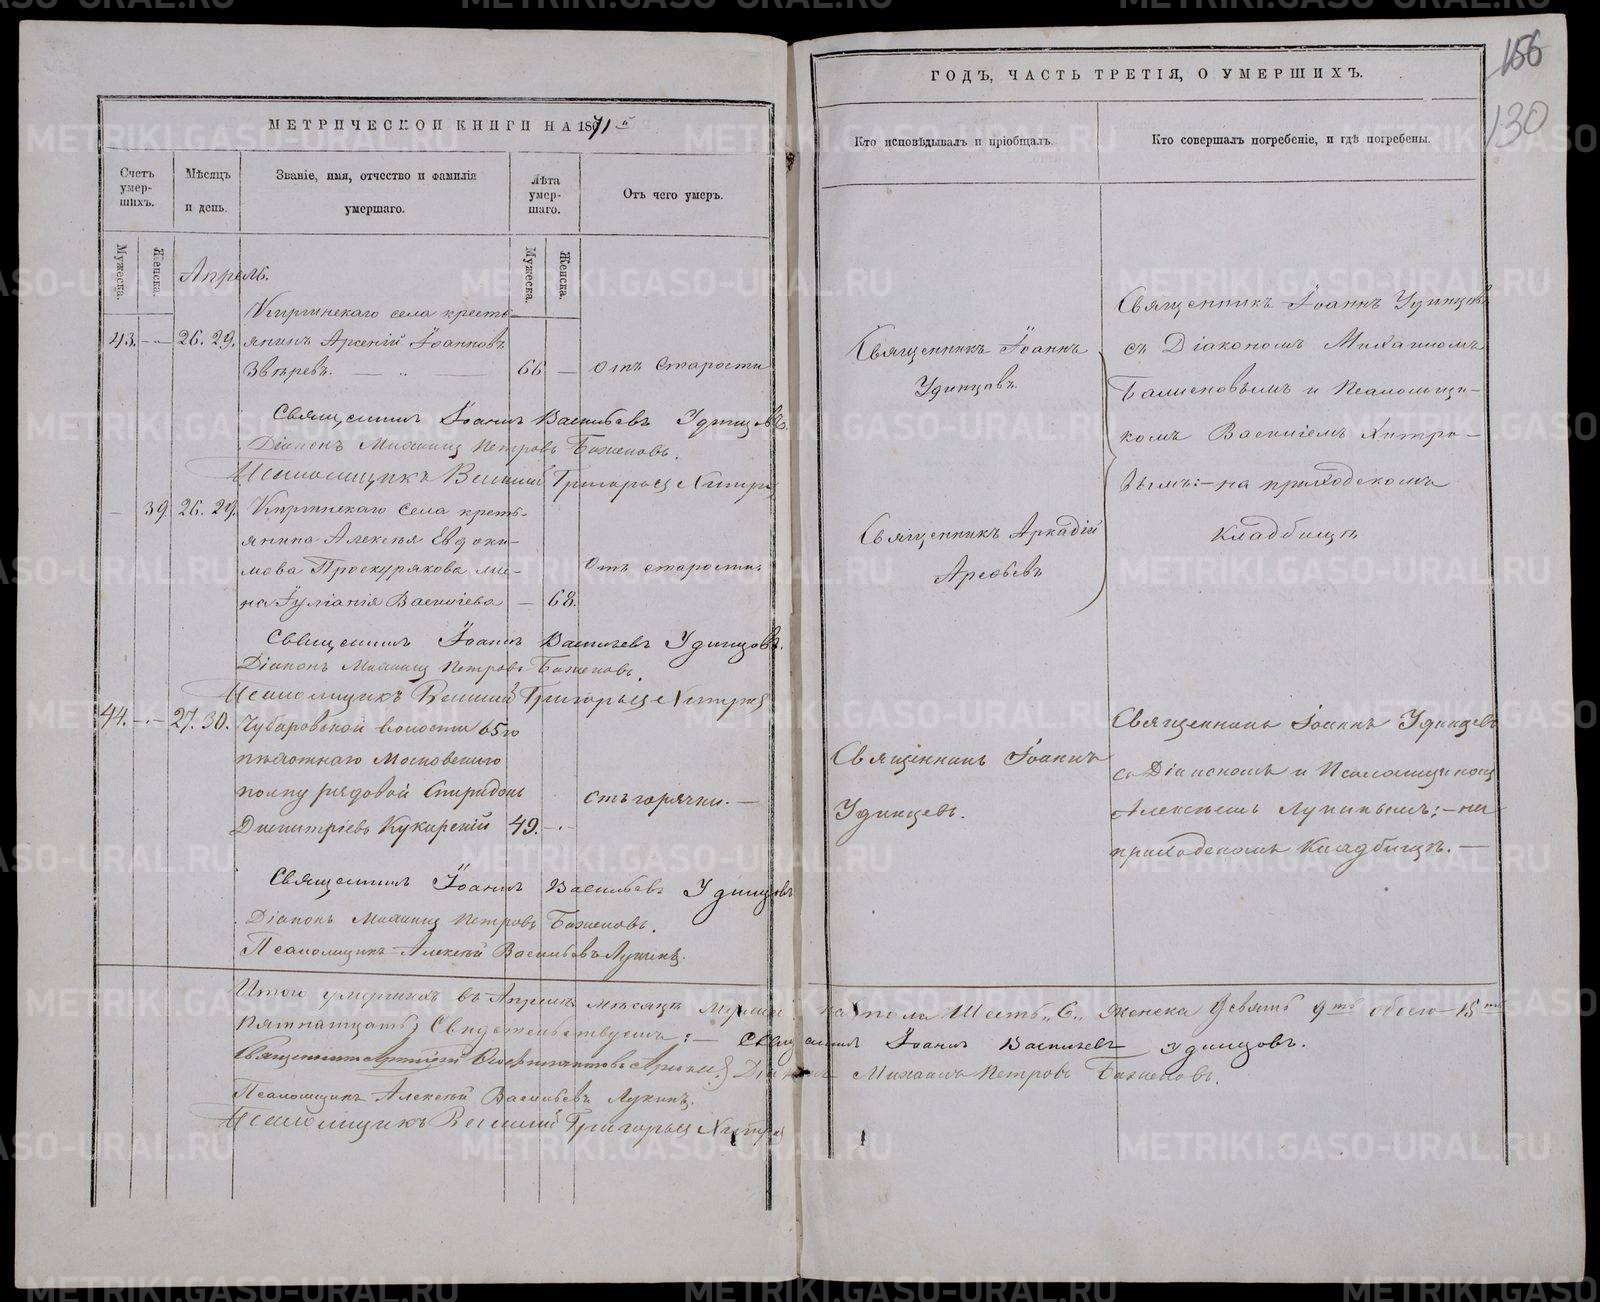 МЕТРИЧЕСКОЙ КНИГИ НА 1871й
Счетъ умер-
шихъ.
Мѣсяцъ
и день.
Званіе, имя, отчество и фамилія
умершаго.
Лѣта
умер-
шаго.
Отъ чего умеръ.
Мужеска.
Женска.
Мужеска.
Женска.
Апрель.
Киргинскаго села кресть-
43. 26. 29. янинъ Арсеній Іоанновъ
Звѣревъ. 66 — Отъ старости
Священникъ Іоаннъ Васильевъ Удинцовъ.
Діаконъ Михаилъ Петровъ Баженовъ.
Псаломщикъ Василий Григорьевъ
— 39. 26. 29. Киргинскаго села кресть-
янина Алексѣя Евдоки-
мова Проскурякова же-
на Іуліанія Василіева — 68.
Отъ старости.
Священникъ Іоаннъ Васильевъ Удинцовъ.
Діаконъ Михаилъ Петровъ Баженовъ.
Псаломщикъ Василий Григорьевъ
44. 27. 30. Чубаровской волости 65го
пѣхотнаго Московскаго
полку рядовой Спиридонъ
Димитріевъ 49.
Отъ горячки.—
Священникъ Іоаннъ Васильевъ Удинцовъ
Діаконъ Михаилъ Петровъ Баженовъ.
Псаломщикъ Алексѣй Васильевъ Лукинъ.
Итого умершихъ въ Апрелѣ мѣсяцѣ мужеска пола Шесть „6„ Женска девять 9ть обоего 15ть
Пятнатцать) Свидетельствуемъ:— Священникъ Іоаннъ Васильевъ Удинцовъ.
Священникъ Діаконъ Михаилъ Петровъ Баженовъ.
Псаломщикъ Алексѣй Васильевъ Лукинъ.
Псаломщикъ Василий Григорьевъ
156
130
ГОДЪ, ЧАСТЬ ТРЕТІЯ, О УМЕРШИХЪ.
Кто исповѣдывалъ и пріобщалъ.
Кто совершалъ погребеніе, и гдѣ погребены.
Священникъ Іоаннъ
Удинцовъ.
Священникъ Аркадій
Священникъ Іоаннъ
Удинцевъ.
Священникъ Іоаннъ Удинцовъ
съ Діакономъ Михаиломъ
Баженовымъ и Псаломщи-
комъ Василіемъ Хитро-
вымъ:— на приходскомъ
кладбищѣ
Священникъ Іоаннъ Удинцевъ
съ Діакономъ и Псаломщикомъ
Алексѣемъ Лукинымъ;— на
приходскомъ Кладбищѣ.—
METRIKI.GASO-URAL.RU